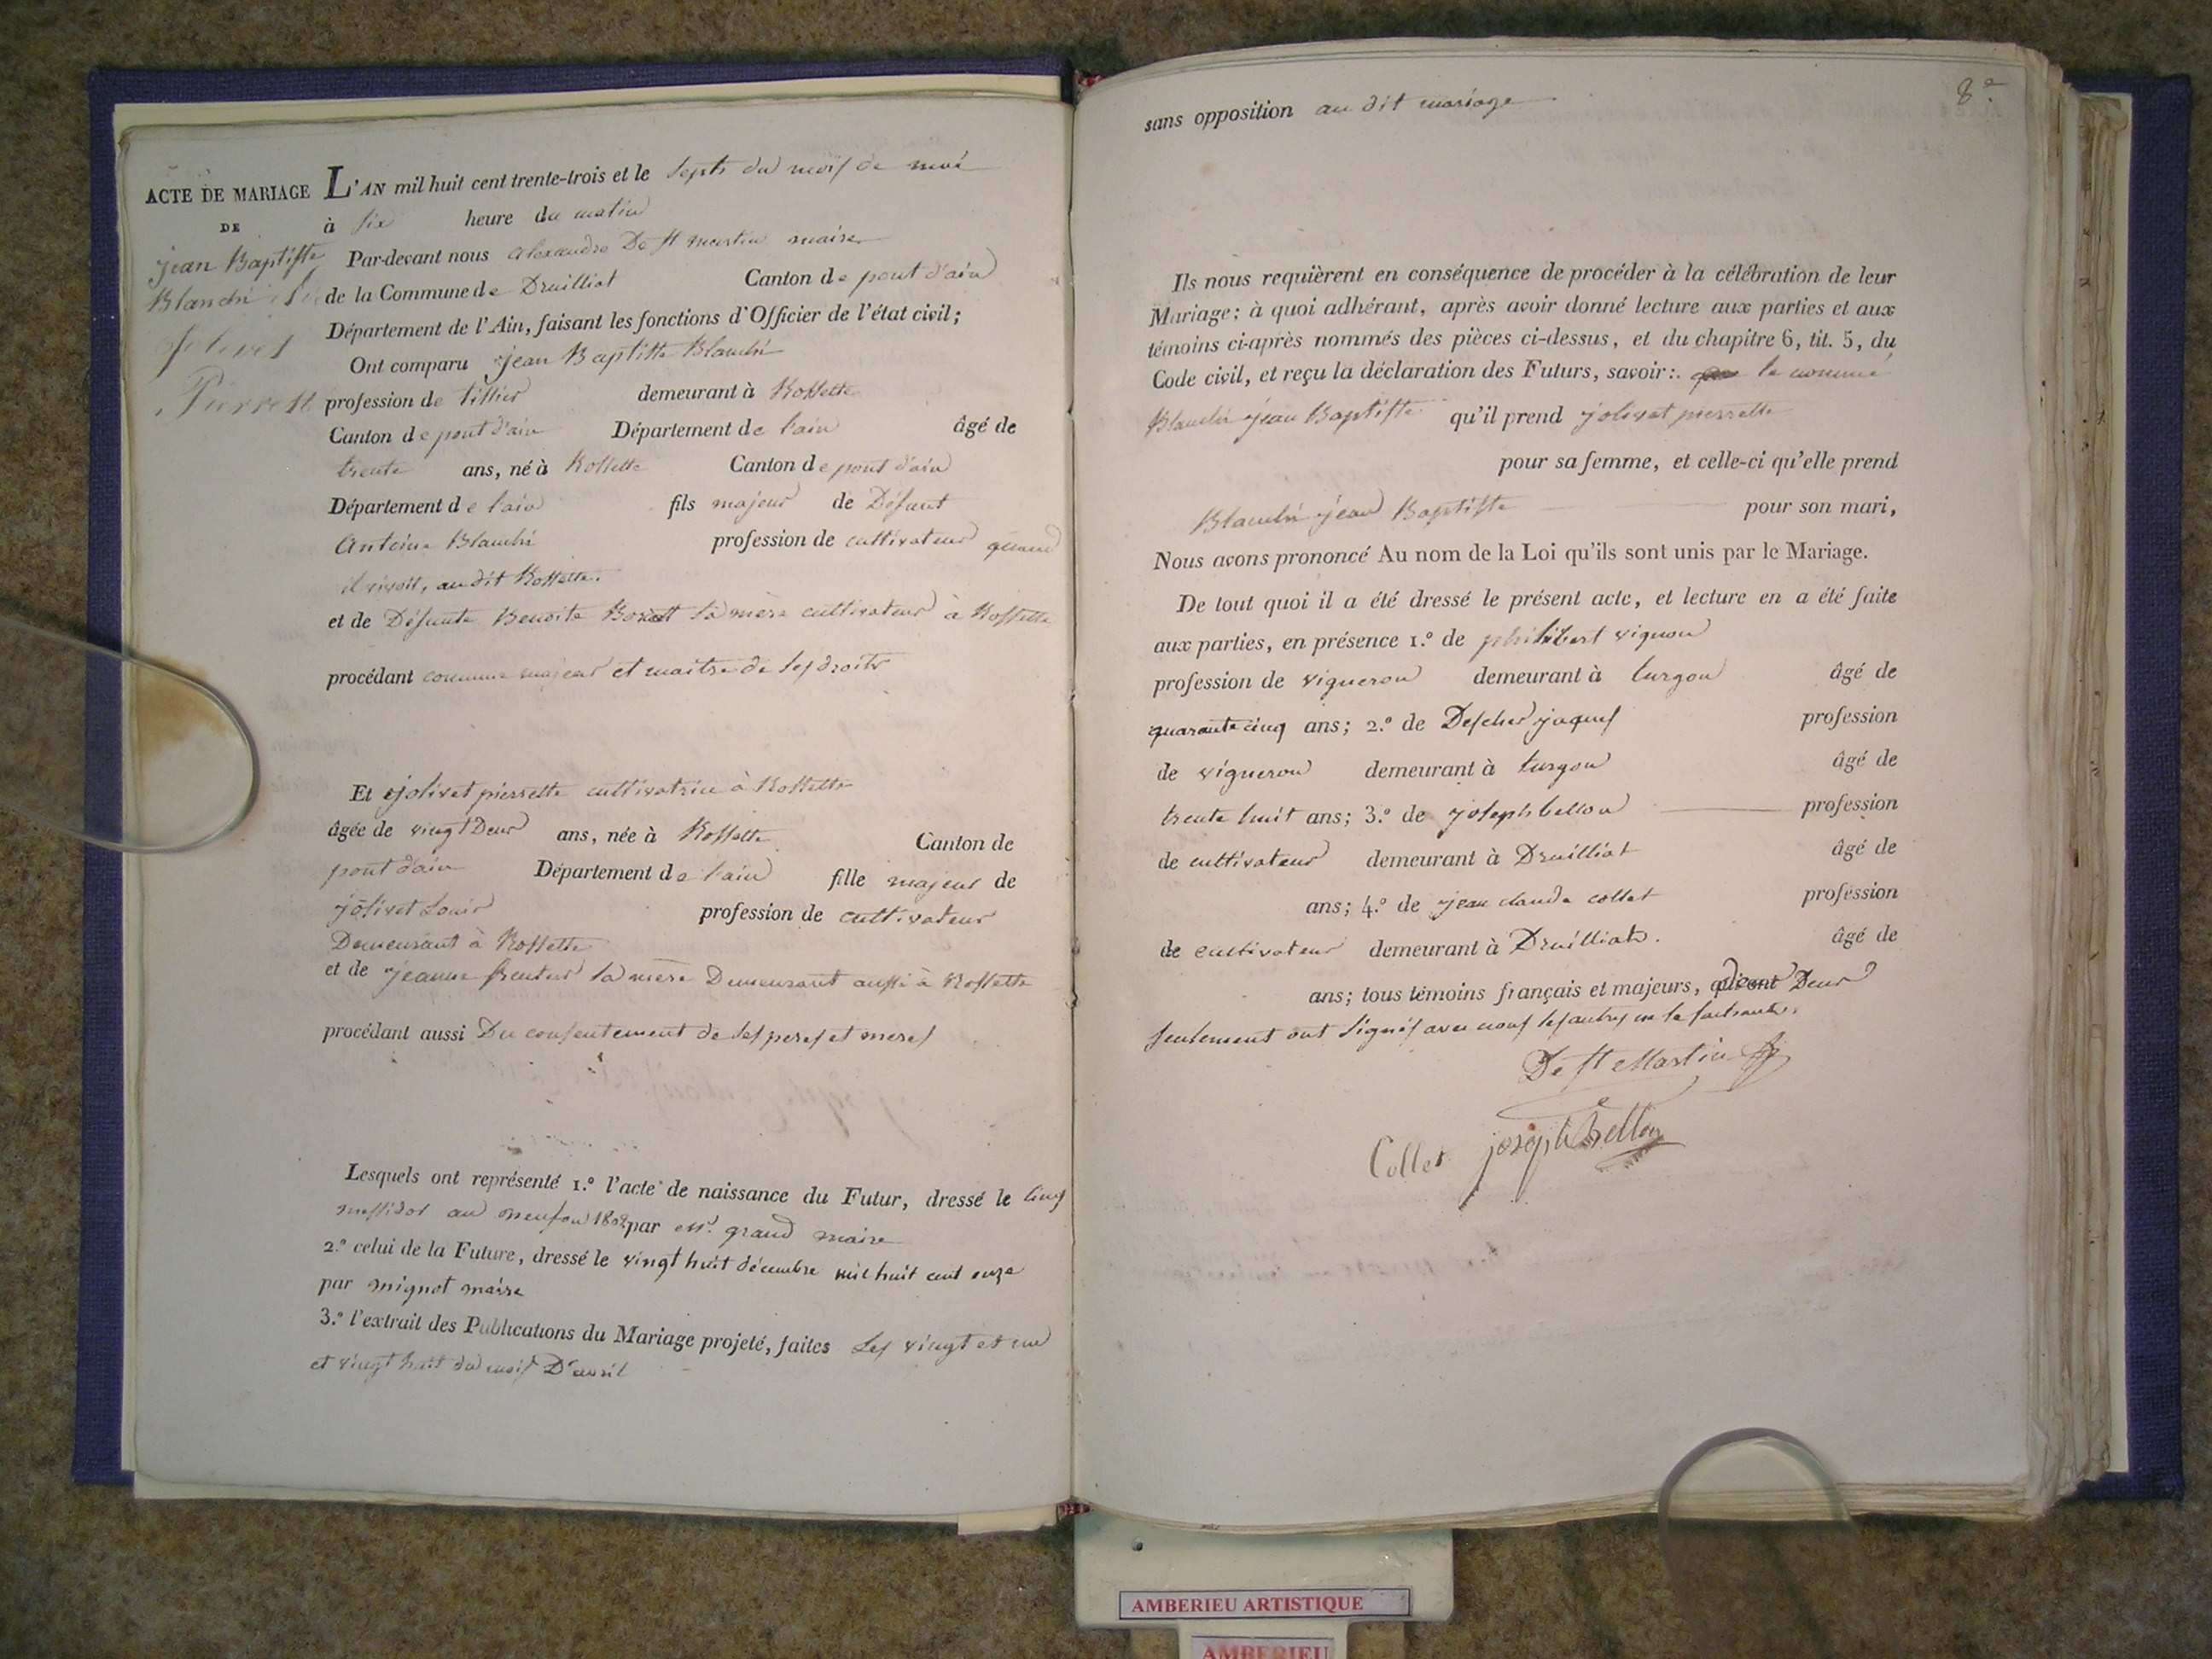 ACTE DE MARIAGE
DE
jean Baptiste
Blanché
Jolivet
Pierrett
L'AN mil huit cent trente-trois et le septs du mois de mai
à six heure du matin
Par-devant nous alexandre De st martin maire
de la Commune de Druilliat Canton de pont d'ain
Département de l'Ain, faisant les fonctions d'Officier de l'état civil;
Ont comparu jean Baptiste Blanché
profession de tissier demeurant à Rossette
Canton de pont d'ain Département de l'ain âgé de
trente ans, né à Rossette Canton de pont d'ain
Département de l'ain fils majeur de Défunt
Antoine Blanché profession de cultivateur quand
il vivoit, au dit Rossette.
et de Défunte Benoite sa mère cultivateur à Rossette
procédant comme majeur et maitre de ses droits
Et jolivet pierrette cultivatrice à Rossette
âgée de vingt Deux ans, née à Rossette Canton de
pont d'ain Département de l'ain fille majeur de
jolivet Louis profession de cultivateur
Demeurant à Rossette
et de jeanne sa mère Demeurant aussi à Rossette
procédant aussi Du consentement de ses peres et meres
Lesquels ont représenté 1.º l'acte de naissance du Futur, dressé le cinq
messidor an par mr. grand maire
2.º celui de la Future, dressé le vingt huit décembre mil huit cent onze
par mignot maire
3.º l'extrait des Publications du Mariage projeté, faites Les vingt et un
et vingt huit du mois D'avril
8.e
sans opposition au dit mariage
Ils nous requièrent en conséquence de procéder à la célébration de leur
Mariage; à quoi adhérant, après avoir donné lecture aux parties et aux
témoins ci-après nommés des pièces ci-dessus, et du chapitre 6, tit. 5, du
Code civil, et reçu la déclaration des Futurs, savoir: le nommé
Blanché jean Baptiste qu'il prend jolivet pierrette
pour sa femme, et celle-ci qu'elle prend
Blanché jean Baptiste pour son mari,
Nous avons prononcé Au nom de la Loi qu'ils sont unis par le Mariage.
De tout quoi il a été dressé le présent acte, et lecture en a été faite
aux parties, en présence 1.º de philibert vignon
profession de vigneron demeurant à turgon âgé de
quarante cinq ans; 2.º de Descher jaques profession
de vigneron demeurant à turgon âgé de
trente huit ans; 3.º de joseph bellon profession
de cultivateur demeurant à Druilliat âgé de
ans; 4.º de jean claude collet profession
de cultivateur demeurant à Druilliat. âgé de
ans; tous témoins français et majeurs, Deux
seulement ont signés avec nous les autres
De st Martin
Collet joseph bellon
AMBERIEU ARTISTIQUE
AMBERIEU